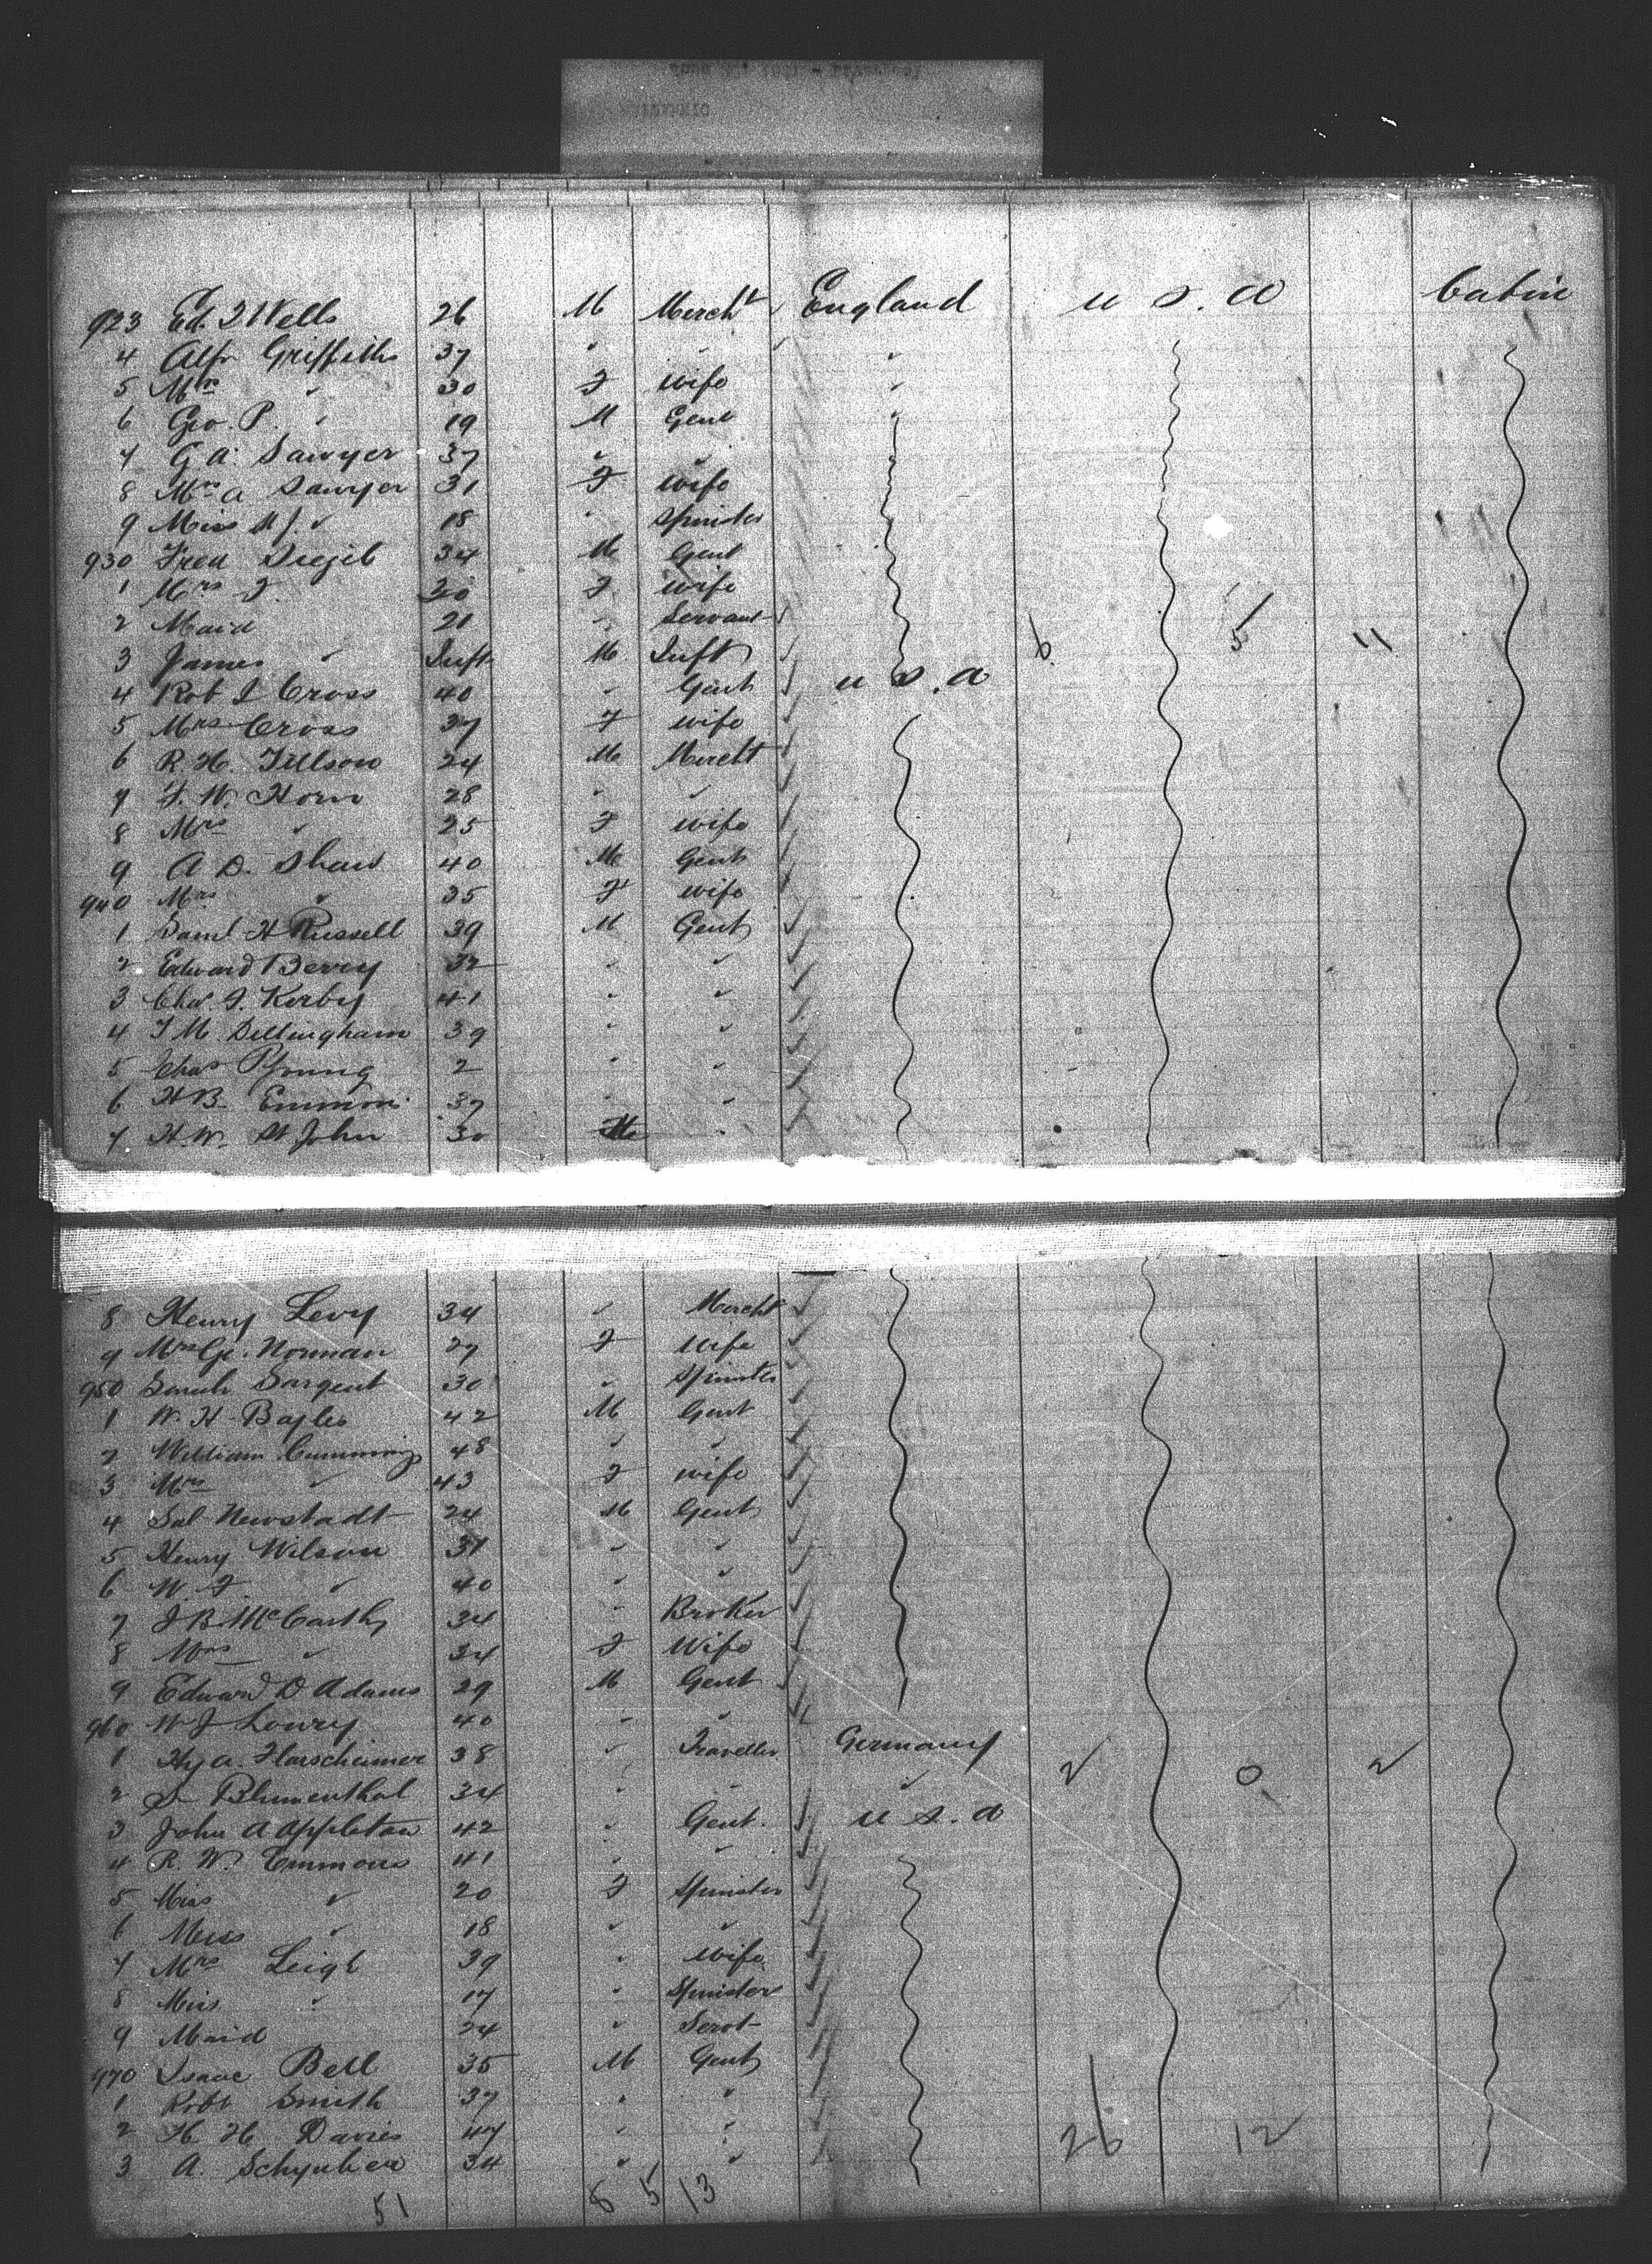 923 Ed. J Wells 26 M Mercht England U S. A Cabin
4 Alfr Griffiths 37 " " "
5 Mrs " 30 F wife "
6 Geo. P. " 19 M Gent
7 G A. Sawyer 37 " "
8 Mrs A Sawyer 31 F wife
9 Miss M J. " 18 " Spinster
930 Fred 34 M Gent
1 Mrs F. 30 F wife
2 Maid 21 " Servant
3 James " Inft M Inft 6 5 11
4 Rob J Cross 40 " Gent U S. A
5 Mrs Cross 37 F wife
6 R. H. Tillson 24 M Mercht
7 F. W. Horn 28 " "
8 Mrs " 25 F wife
9 A D. Shaw 40 M Gent
940 Mrs " 35 F wife
1 Saml H Russell 39 M Gent
2 Edward Berry 32 " "
3 Chas. F. Kerby 41 " "
4 T M. Dillingham 39 " "
5 Chas P Young 2 " "
6 H B. Emmons 37 " "
7 H. W. St John 30 M "
8 Henry Levy 34 " Mercht
9 Mrs Ge. Norman 27 F Wife
950 Sarah Sargent 30 " Spinster
1 W. H. Bayles 42 M Gent
2 William Cummings 48 " "
3 Mrs " 43 F wife
4 Sal Newstadt 24 M Gent
5 Henry Wilson 31 " "
6 W. F. " 40 " "
7 J B. McCarthy 34 " Broker
8 Mrs " 34 F Wife
9 Edward D Adams 29 M Gent
960 W J Lowry 40 " "
1 Hy A. Florscheimer 38 " Traveller Germany 2 0 2
2 Blumenthal 34 " " "
3 John A Appleton 42 " Gent. U S. A
4 R. W. Emmons 41 " "
5 Miss " 20 F Spinster
6 Miss " 18 " "
7 Mrs Leigh 39 " Wife
8 Miss " 17 " Spinster
9 Maid 24 " Servt
970 Isaac Bell 35 M Gent
1 Robt Smith 37 " "
2 H. H. Davies 47 " " 26 12
3 A. 34 " "
51 8 5 13